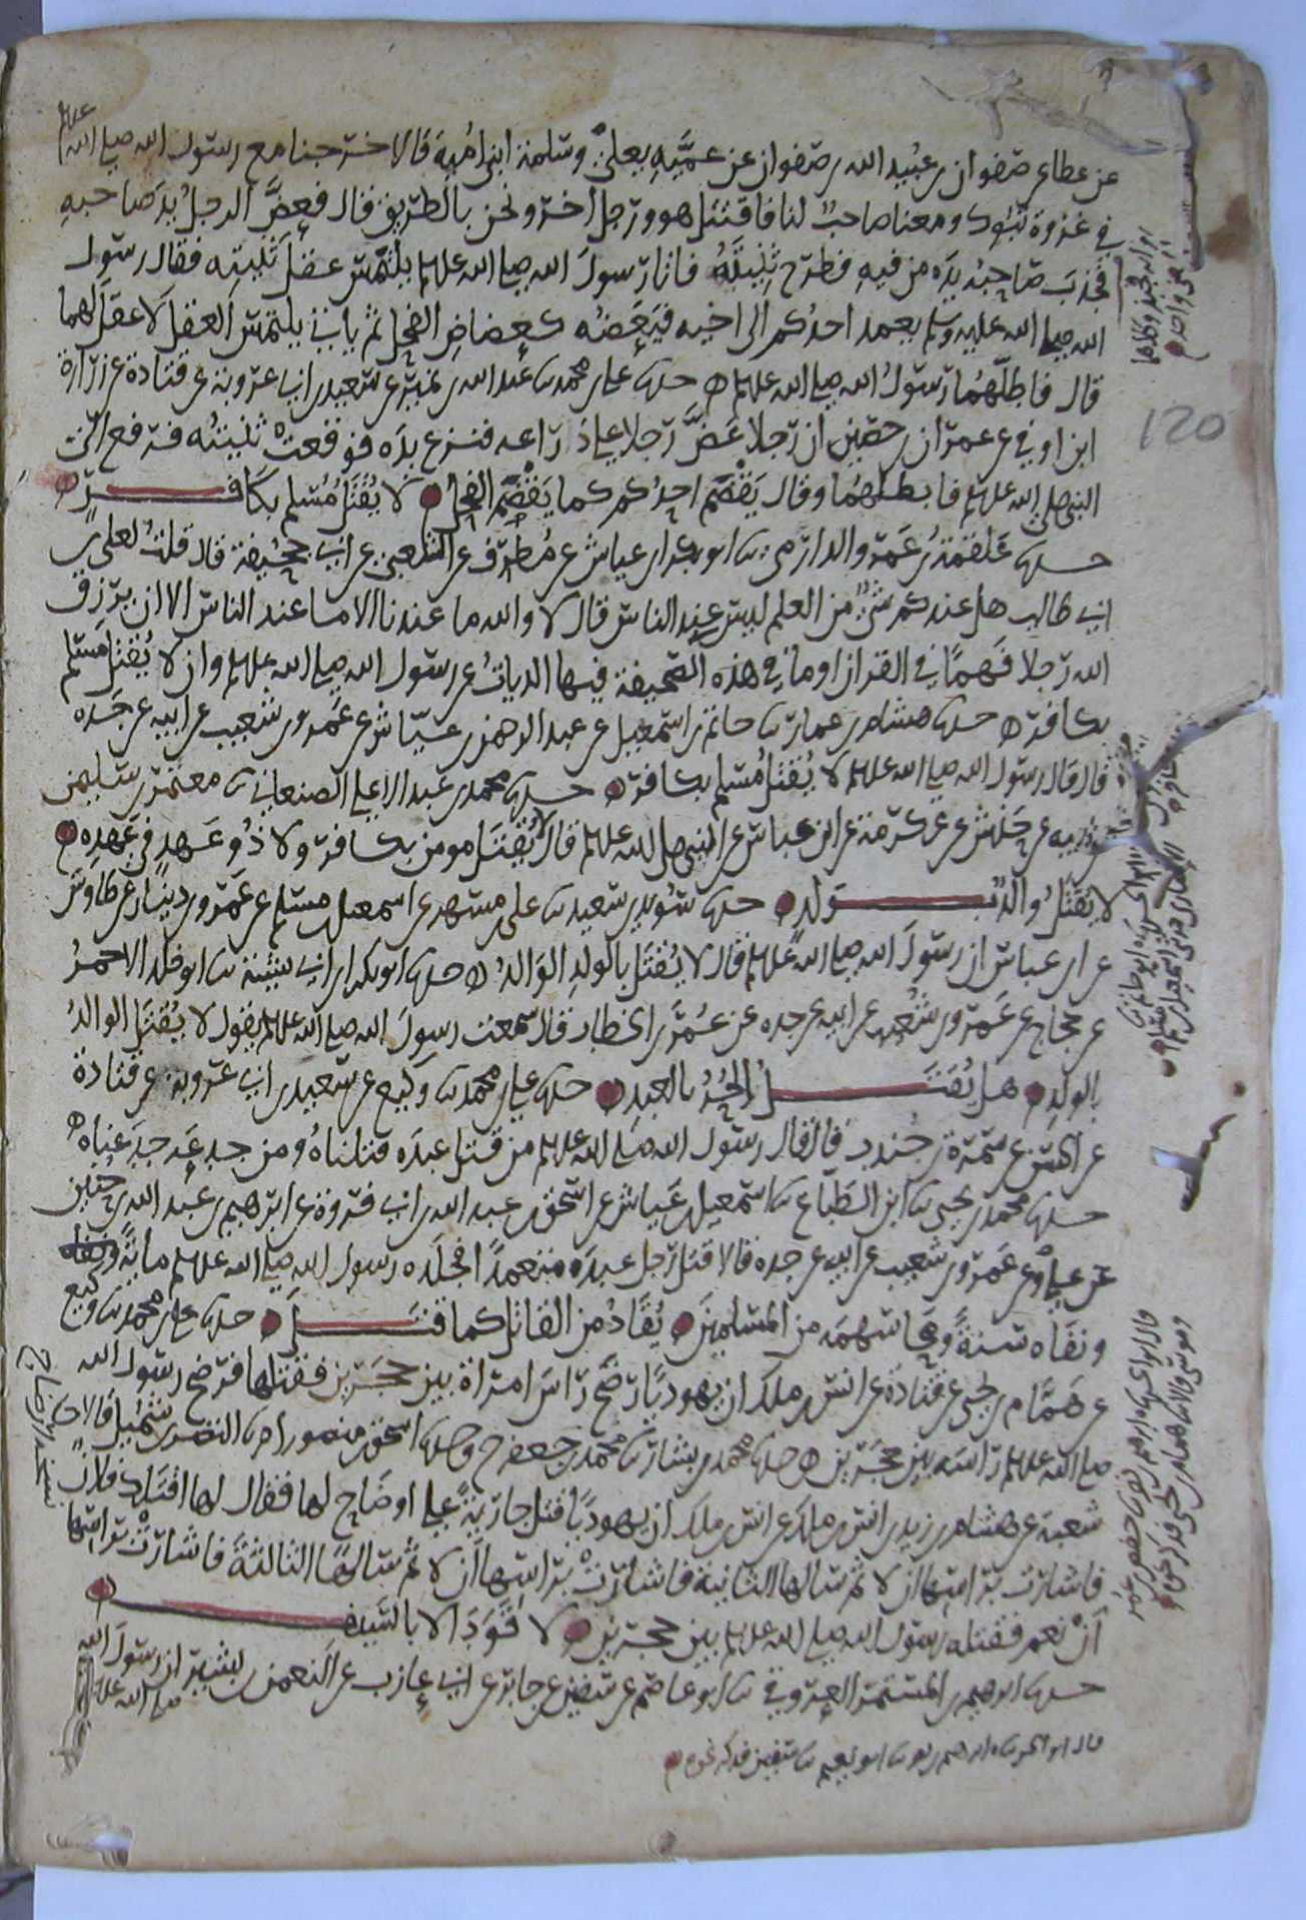 عن عطا عن صفوان بن عبيد الله بن صفوان عن عميه يعلى وسلمة ابني امية قالا خرجنا مع رسول الله صلى الله عليه
في غزوة تبوك ومعنا صاحب لنا فاقتتل هو ورجل اخر ونحن بالطريق قال فعض الرجل يد صاحبه
فجذب صاحبه يده من فيه فطرح ثنيته فاتا رسول الله صلى الله عليه يلتمس عقل ثنيته فقال رسول
الله صلى الله عليه وسلم يعمد احدكم الى اخيه فيعضه كعضاض الفحل ثم ياتي يلتمس العقل لا عقل لها
قال فابطلها رسول الله صلى الله عليه حدثنا علي بن محمد نا عبد الله بن نمير عن سعيد بن ابي عروبة عن قتادة عن زرارة
ابن اوفى عن عمران بن حصين ان رجلا عض رجلا على ذراعه فنزع يده فوقعت ثنيته فرفع الى
النبي صلى الله عليه فابطلها وقال يقضم احدكم كما يقضم الفحل لا يقتل مسلم بكافر
حدثنا علقمة بن عمرو الدارمي نا ابو بكر بن عياش عن مطرف عن الشعبي عن ابي جحيفة قال قلت لعلي بن
ابي طالب هل عندكم شي من العلم ليس عند الناس قال لا والله ما عندنا الا ما عند الناس الا ان يرزق
الله رجلا فهما في القران او ما في هذه الصحيفة فيها الديات عن رسول الله صلى الله عليه وان لا يقتل مسلم
بكافر حدثنا هشام بن عمار نا حاتم بن اسمعيل عن عبد الرحمن بن عياش عن عمرو بن شعيب عن ابيه عن جده
قال قال رسول الله صلى الله عليه لا يقتل مسلم بكافر حدثنا محمد بن عبد الاعلى الصنعاني نا معتمر بن سليمن
عن ابيه عن حنش عن عكرمة عن ابن عباس عن النبي صلى الله عليه قال لا يقتل مومن بكافر ولا ذو عهد في عهده
لا يقتل والد بولد حدثنا سويد بن سعيد نا علي بن مسهر عن اسمعيل بن مسلم عن عمرو بن دينار عن طاوس
عن ابن عباس ان رسول الله صلى الله عليه قال لا يقتل بالولد الوالد حدثنا ابو بكر بن ابي شيبة نا ابو خلد الاحمر
عن حجاج عن عمرو بن شعيب عن ابيه عن جده عن عمر بن الخطاب قال سمعت رسول الله صلى الله عليه يقول لا يقتل الوالد
بالولد هل يقتل الحر بالعبد حدثنا علي بن محمد نا وكيع عن سعيد بن ابي عروبة عن قتادة
عن الحسن عن سمرة بن جندب قال قال رسول الله صلى الله عليه من قتل عبده قتلناه ومن جدعه جدعناه
حدثنا محمد بن يحيى نا ابن الطباع نا اسمعيل بن عياش عن اسحق بن عبد الله بن ابي فروة عن ابرهيم بن عبد الله بن حنين
عن علي وعن عمرو بن شعيب عن ابيه عن جده قالا قتل رجل عبده متعمدا فجلده رسول الله صلى الله عليه ماية
ونفاه سنة ومحا سهمه من المسلمين يقاد من القاتل كما قتل حدثنا علي بن محمد نا وكيع
عن همام بن يحيى عن قتادة عن انس بن ملك ان يهوديا رضخ راس امراة بين حجرين فقتلها فرضخ رسول الله
صلى الله عليه راسه بين حجرين حدثنا محمد بن بشار نا محمد بن جعفر ح وحدثنا اسحق بن منصور نا النضر بن شميل قالا نا
شعبة عن هشام بن زيد بن انس بن ملك عن انس بن ملك ان يهوديا قتل جارية على اوضاح لها فقال لها اقتلك فلان
فاشارت براسها ان لا ثم سالها الثانية فاشارت براسها ان لا ثم سالها الثالثة فاشارت براسها
ان نعم فقتله رسول الله صلى الله عليه بين حجرين لا قود الا بالسيف
حدثنا ابرهيم بن المستمر العروقي نا ابو عاصم عن سفين عن جابر عن ابي عازب عن النعمن بن بشير ان رسول الله
صلى الله عليه
120